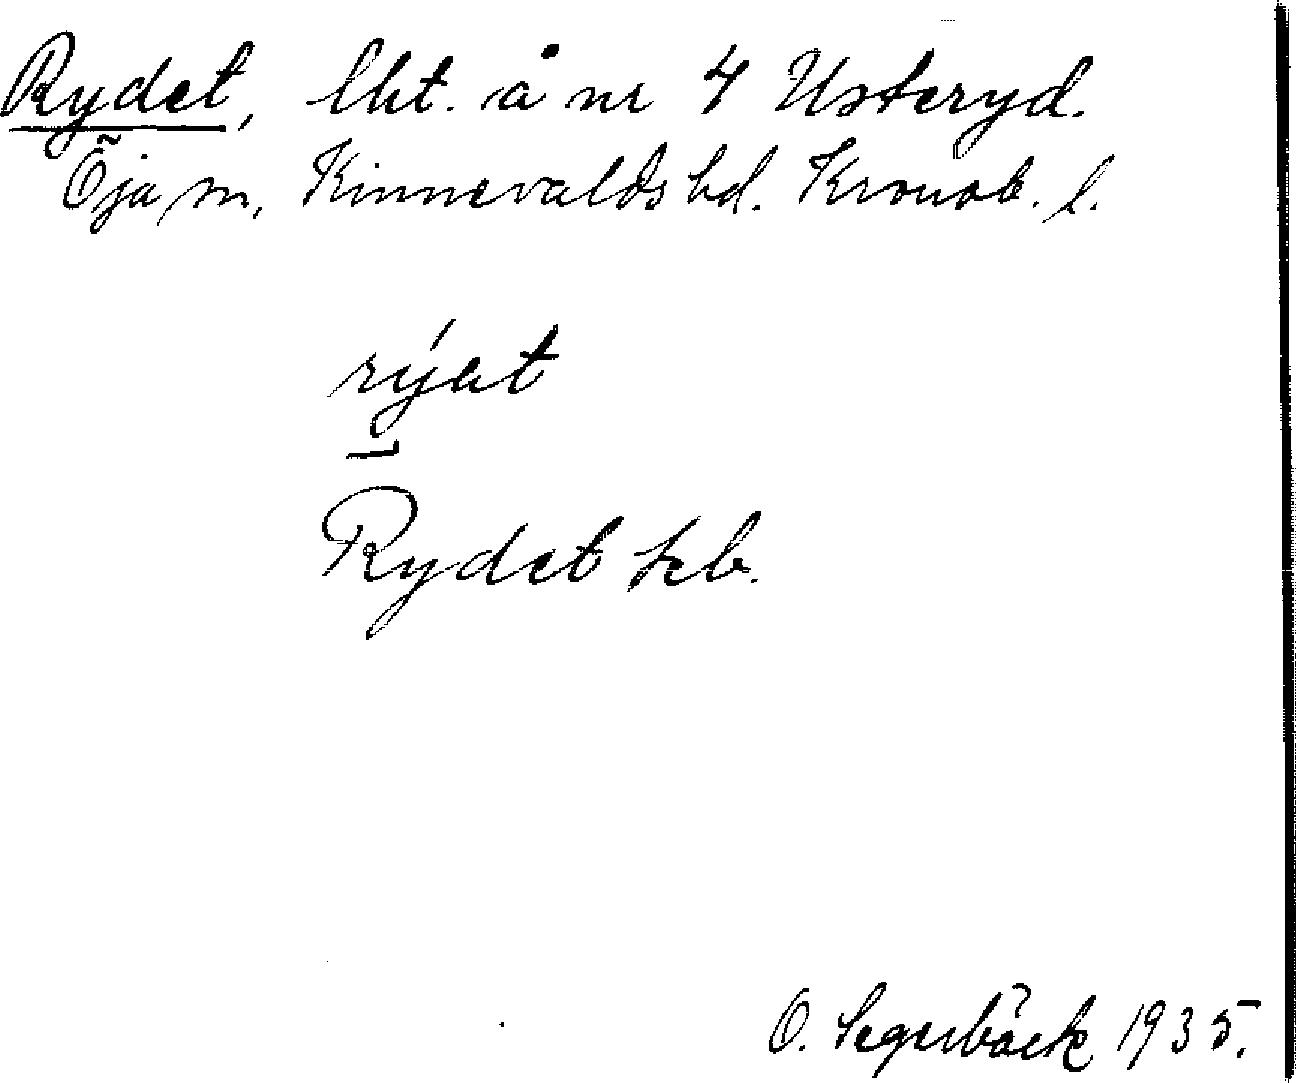 Rydet, lht. å nr 4 Usteryd.
Öja sn, Kinnevalds hd. Kronob. l.
rýat
Rydet kb.
O. Segerbäck 1935.